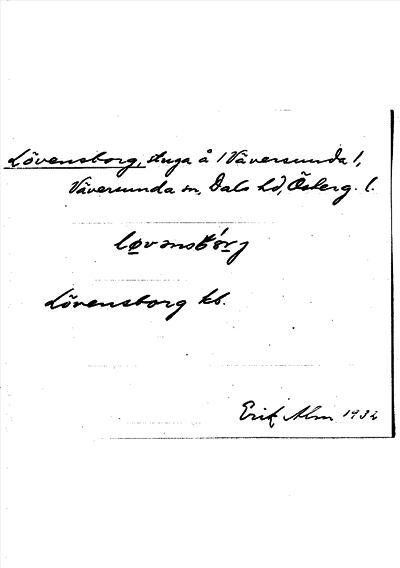 Lövensborg, stuga å 1 Väversunda 1,
Väversunda sn, Dals hd, Österg. l.
løvənsbórg
Lövensborg kb.
Erik Alm 1932